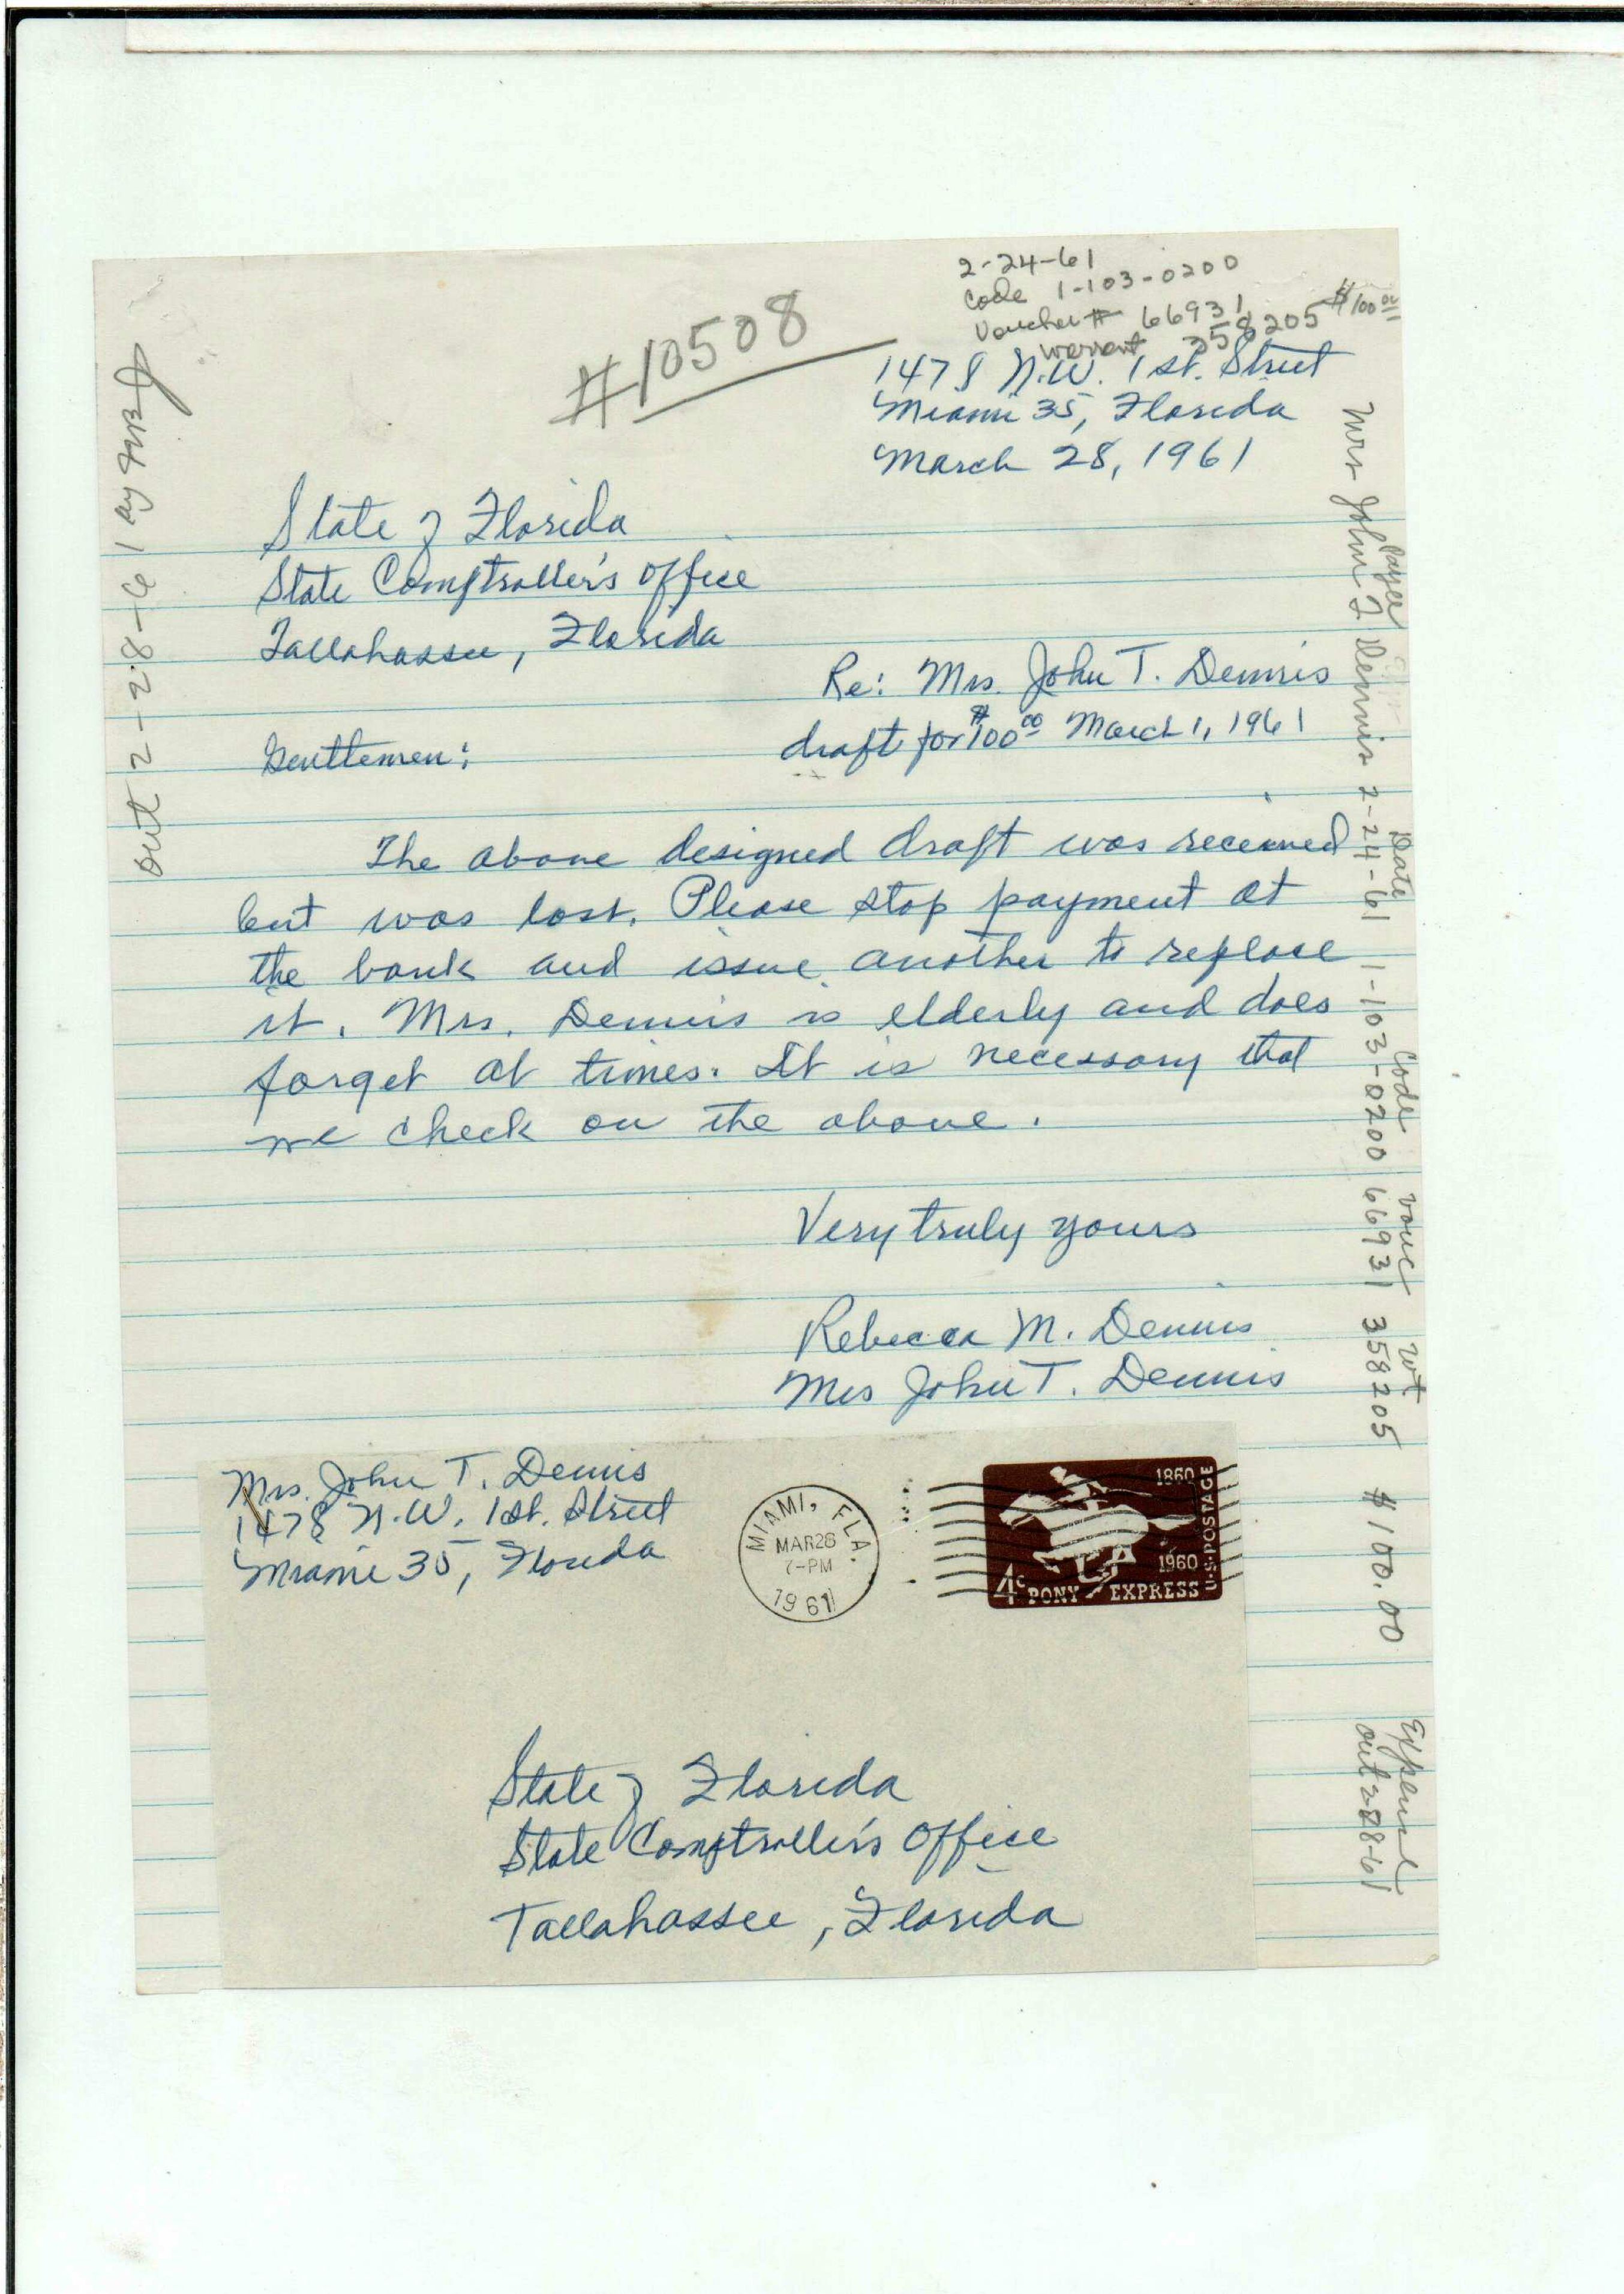 2-24-61
Code 1-103-0200
Voucher # 66931
warrant 358205 $100.00
#10508
1478 N.W. 1st. Street
Miami 35, Florida
March 28, 1961
State of Florida
State Comptroller's Office
Tallahassee, Florida
Re: Mrs. John T. Dennis
draft for $100.00 March 1, 1961
Gentlemen:
The above designed draft was received
but was lost. Please stop payment at
the bank and issue another to replace
it. Mrs. Dennis is elderly and does
forget at times. It is necessary that
we check on the above.
Very truly yours
Rebecca M. Dennis
Mrs John T. Dennis
Out 2-28-61 by
Payee Date Code Vouc Wt
Mrs John T Dennis 2-24-61 1-103-0200 66931 358205 $100.00
Expense
out 2-28-61
Mrs. John T. Dennis
1478 N.W. 1st. Street
Miami 35, Florida
MIAMI, FLA.
MAR 28
7-PM
1961
1860
1960
U.S. POSTAGE
4c PONY EXPRESS
State of Florida
State Comptroller's Office
Tallahassee, Florida